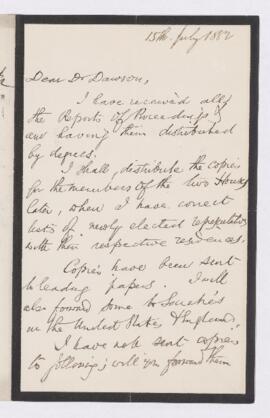 15th July 1882
Dear Dr Dawson,
I have received all
the Reports of Proceedings &
am having them distributed
by degrees.
I shall distribute the copies
for the members of the two Houses
later, when I have correct
lists of newly elected representatives
with their respective residences.
Copies have been sent
to leading papers. I will
also forward some to Societies
in the United States & England.
I have not sent copies
to following; will you forward them